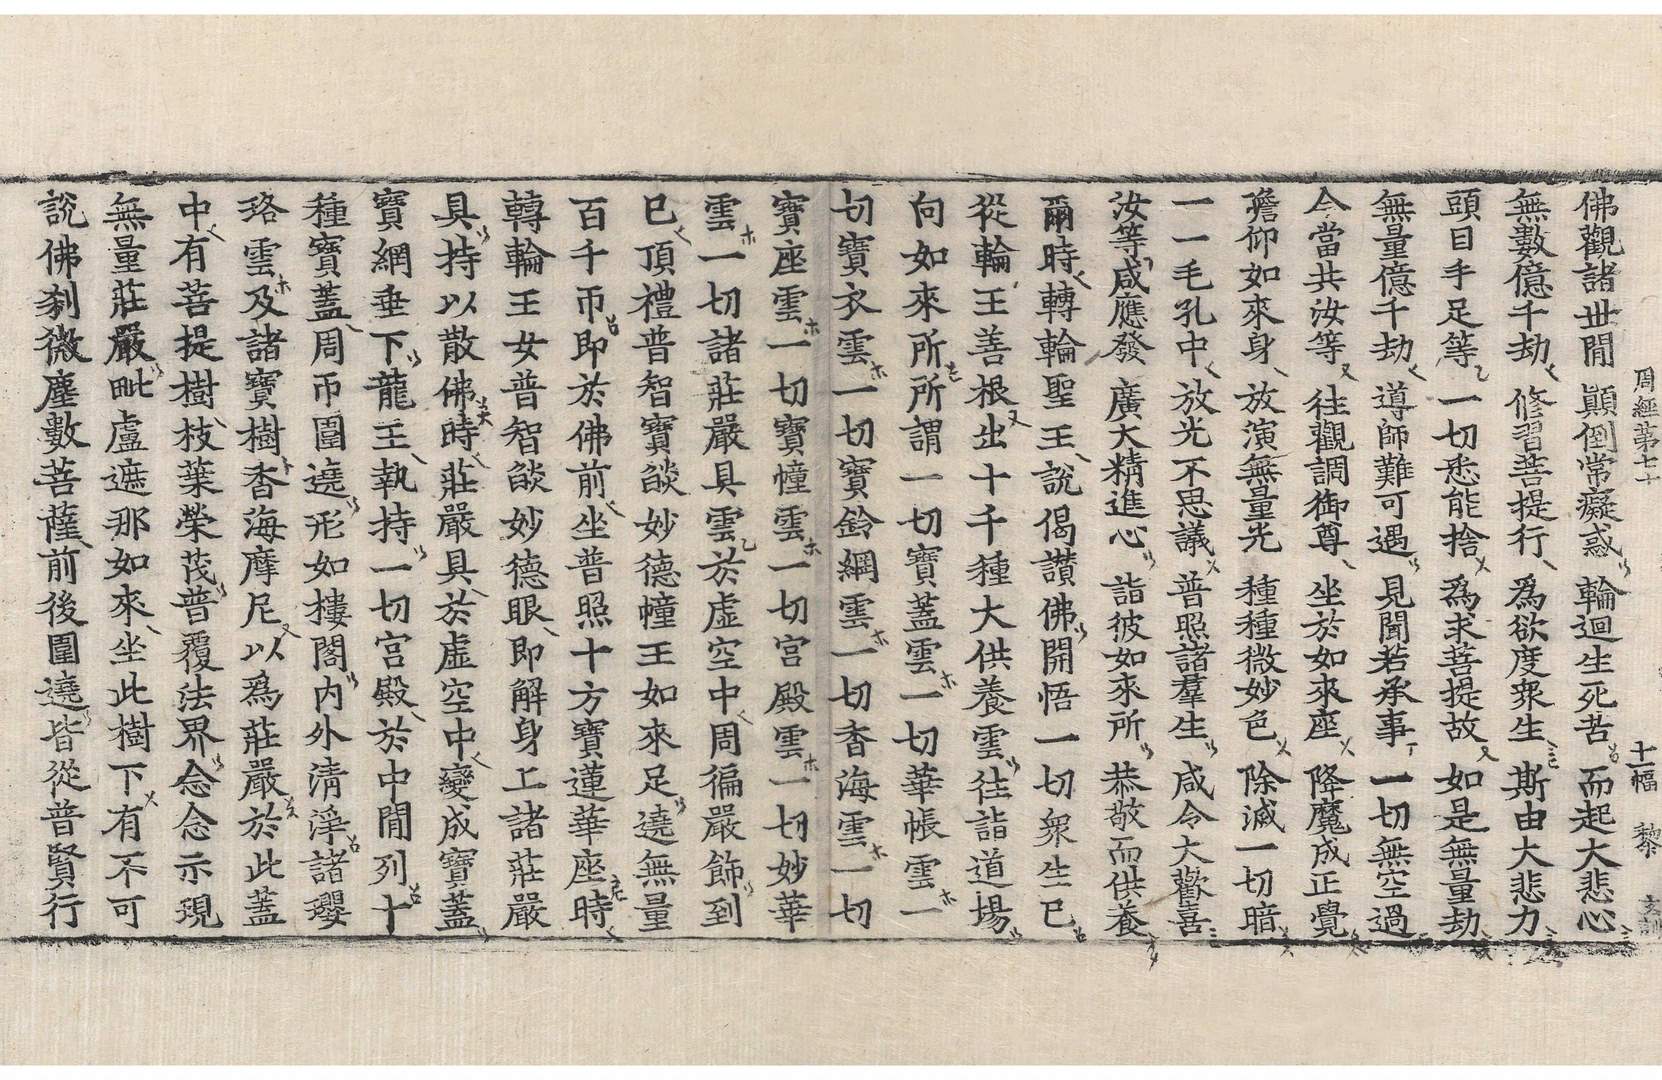 周經第七十 十一幅 黎
佛觀諸世間 顚倒常癡惑 輪迴生死苦 而起大悲心
無數億千劫 修習菩提行 爲欲度衆生 斯由大悲力
頭目手足等 一切悉能捨 爲求菩提故 如是無量劫
無量億千劫 導師難可遇 見聞若承事 一切無空過
今當共汝等 往觀調御尊 坐於如來座 降魔成正覺
瞻仰如來身 放演無量光 種種微妙色 除滅一切暗
一一毛孔中 放光不思議 普照諸羣生 咸令大歡喜
汝等咸應發 廣大精進心 詣彼如來所 恭敬而供養
爾時轉輪聖王說偈讚佛開悟一切衆生已
從輪王善根出十千種大供養雲往詣道場
向如來所所謂一切寶蓋雲一切華帳雲一
切寶衣雲一切寶鈴網雲一切香海雲一切
寶座雲一切寶幢雲一切宮殿雲一切妙華
雲一切諸莊嚴具雲於虛空中周徧嚴飾到
已頂禮普智寶燄妙德幢王如來足遶無量
百千帀即於佛前坐普照十方寶蓮華座時
轉輪王女普智燄妙德眼即解身上諸莊嚴
具持以散佛時莊嚴具於虛空中變成寶蓋
寶網垂下龍王執持一切宮殿於中間列十
種寶蓋周帀圍遶形如樓閣内外清淨諸瓔
珞雲及諸寶樹香海摩尼以爲莊嚴於此蓋
中有菩提樹枝葉榮茂普覆法界念念示現
無量莊嚴毗盧遮那如來坐此樹下有不可
說佛刹微塵數菩薩前後圍遶皆從普賢行